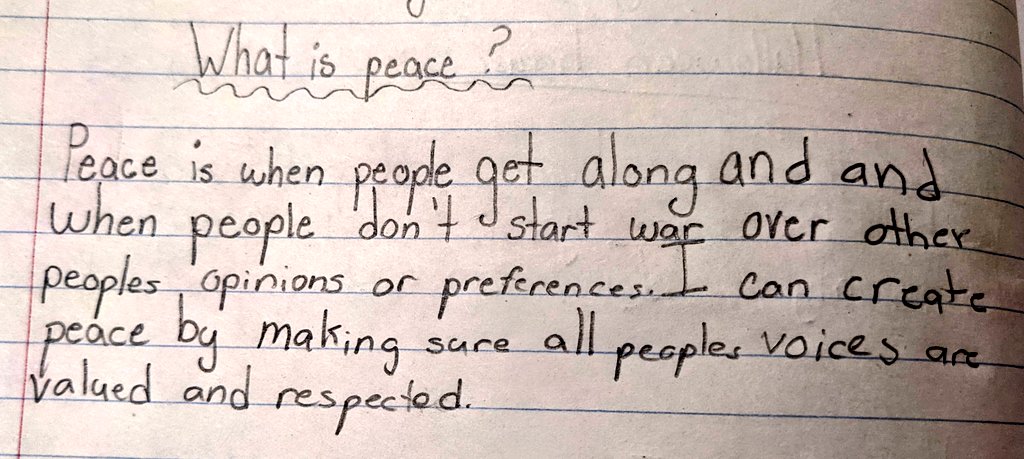 What is peace?
Peace is when people get along and and
when people don't start war over other
peoples opinions or preferences. I can create
peace by making sure all peoples voices are
valued and respected.